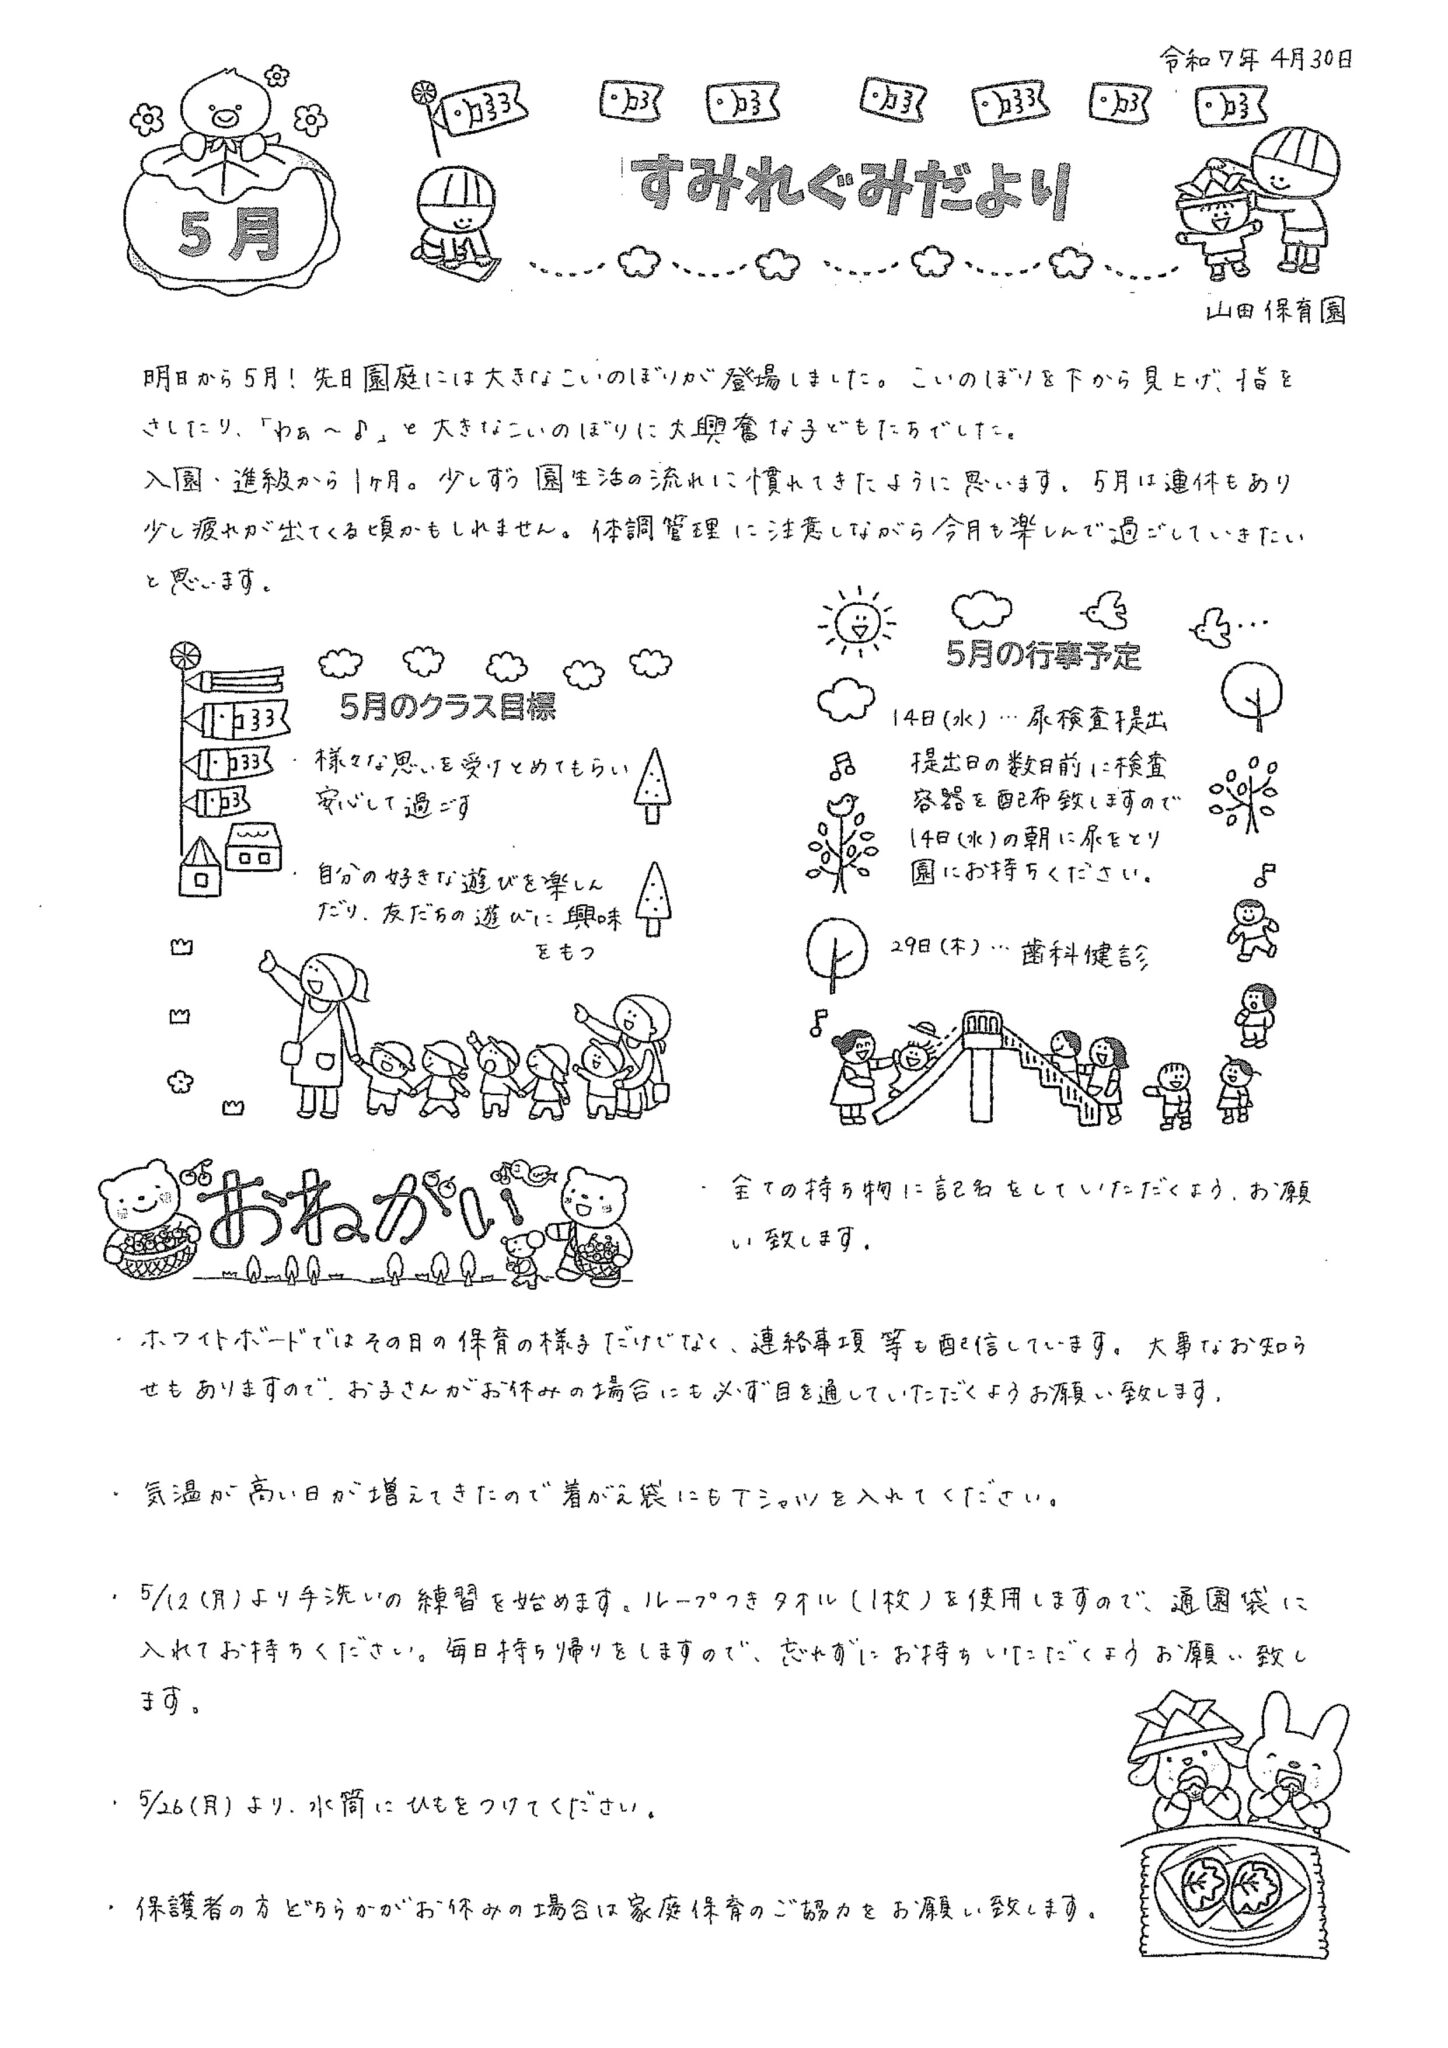 令和7年4月30日
5月
すみれぐみだより
山田保育園
明日から5月！先日園庭には大きなこいのぼりが登場しました。こいのぼりを下から見上げ、指を
さしたり、「わぁ～♪」と大きなこいのぼりに大興奮な子どもたちでした。
入園・進級から1ヶ月。少しずつ園生活の流れに慣れてきたように思います。5月は連休もあり
少し疲れが出てくる頃かもしれません。体調管理に注意しながら今月も楽しんで過ごしていきたい
と思います。
5月のクラス目標
・様々な思いを受けとめてもらい
安心して過ごす
・自分の好きな遊びを楽しん
だり、友だちの遊びに興味
をもつ
5月の行事予定
14日(水)…尿検査提出
提出日の数日前に検査
容器を配布致しますので
14日(水)の朝に尿をとり
園にお持ちください。
29日(木)…歯科健診
おねがい
・全ての持ち物に記名をしていただくよう、お願
い致します。
・ホワイトボードではその日の保育の様子だけでなく、連絡事項等も配信しています。大事なお知ら
せもありますので、お子さんがお休みの場合にも必ず目を通していただくようお願い致します。
・気温が高い日が増えてきたので着がえ袋にもTシャツを入れてください。
・5/12(月)より手洗いの練習を始めます。ループつきタオル(1枚)を使用しますので、通園袋に
入れてお持ちください。毎日持ち帰りをしますので、忘れずにお持ちいただくようお願い致し
ます。
・5/26(月)より、水筒にひもをつけてください。
・保護者の方どちらかがお休みの場合は家庭保育のご協力をお願い致します。